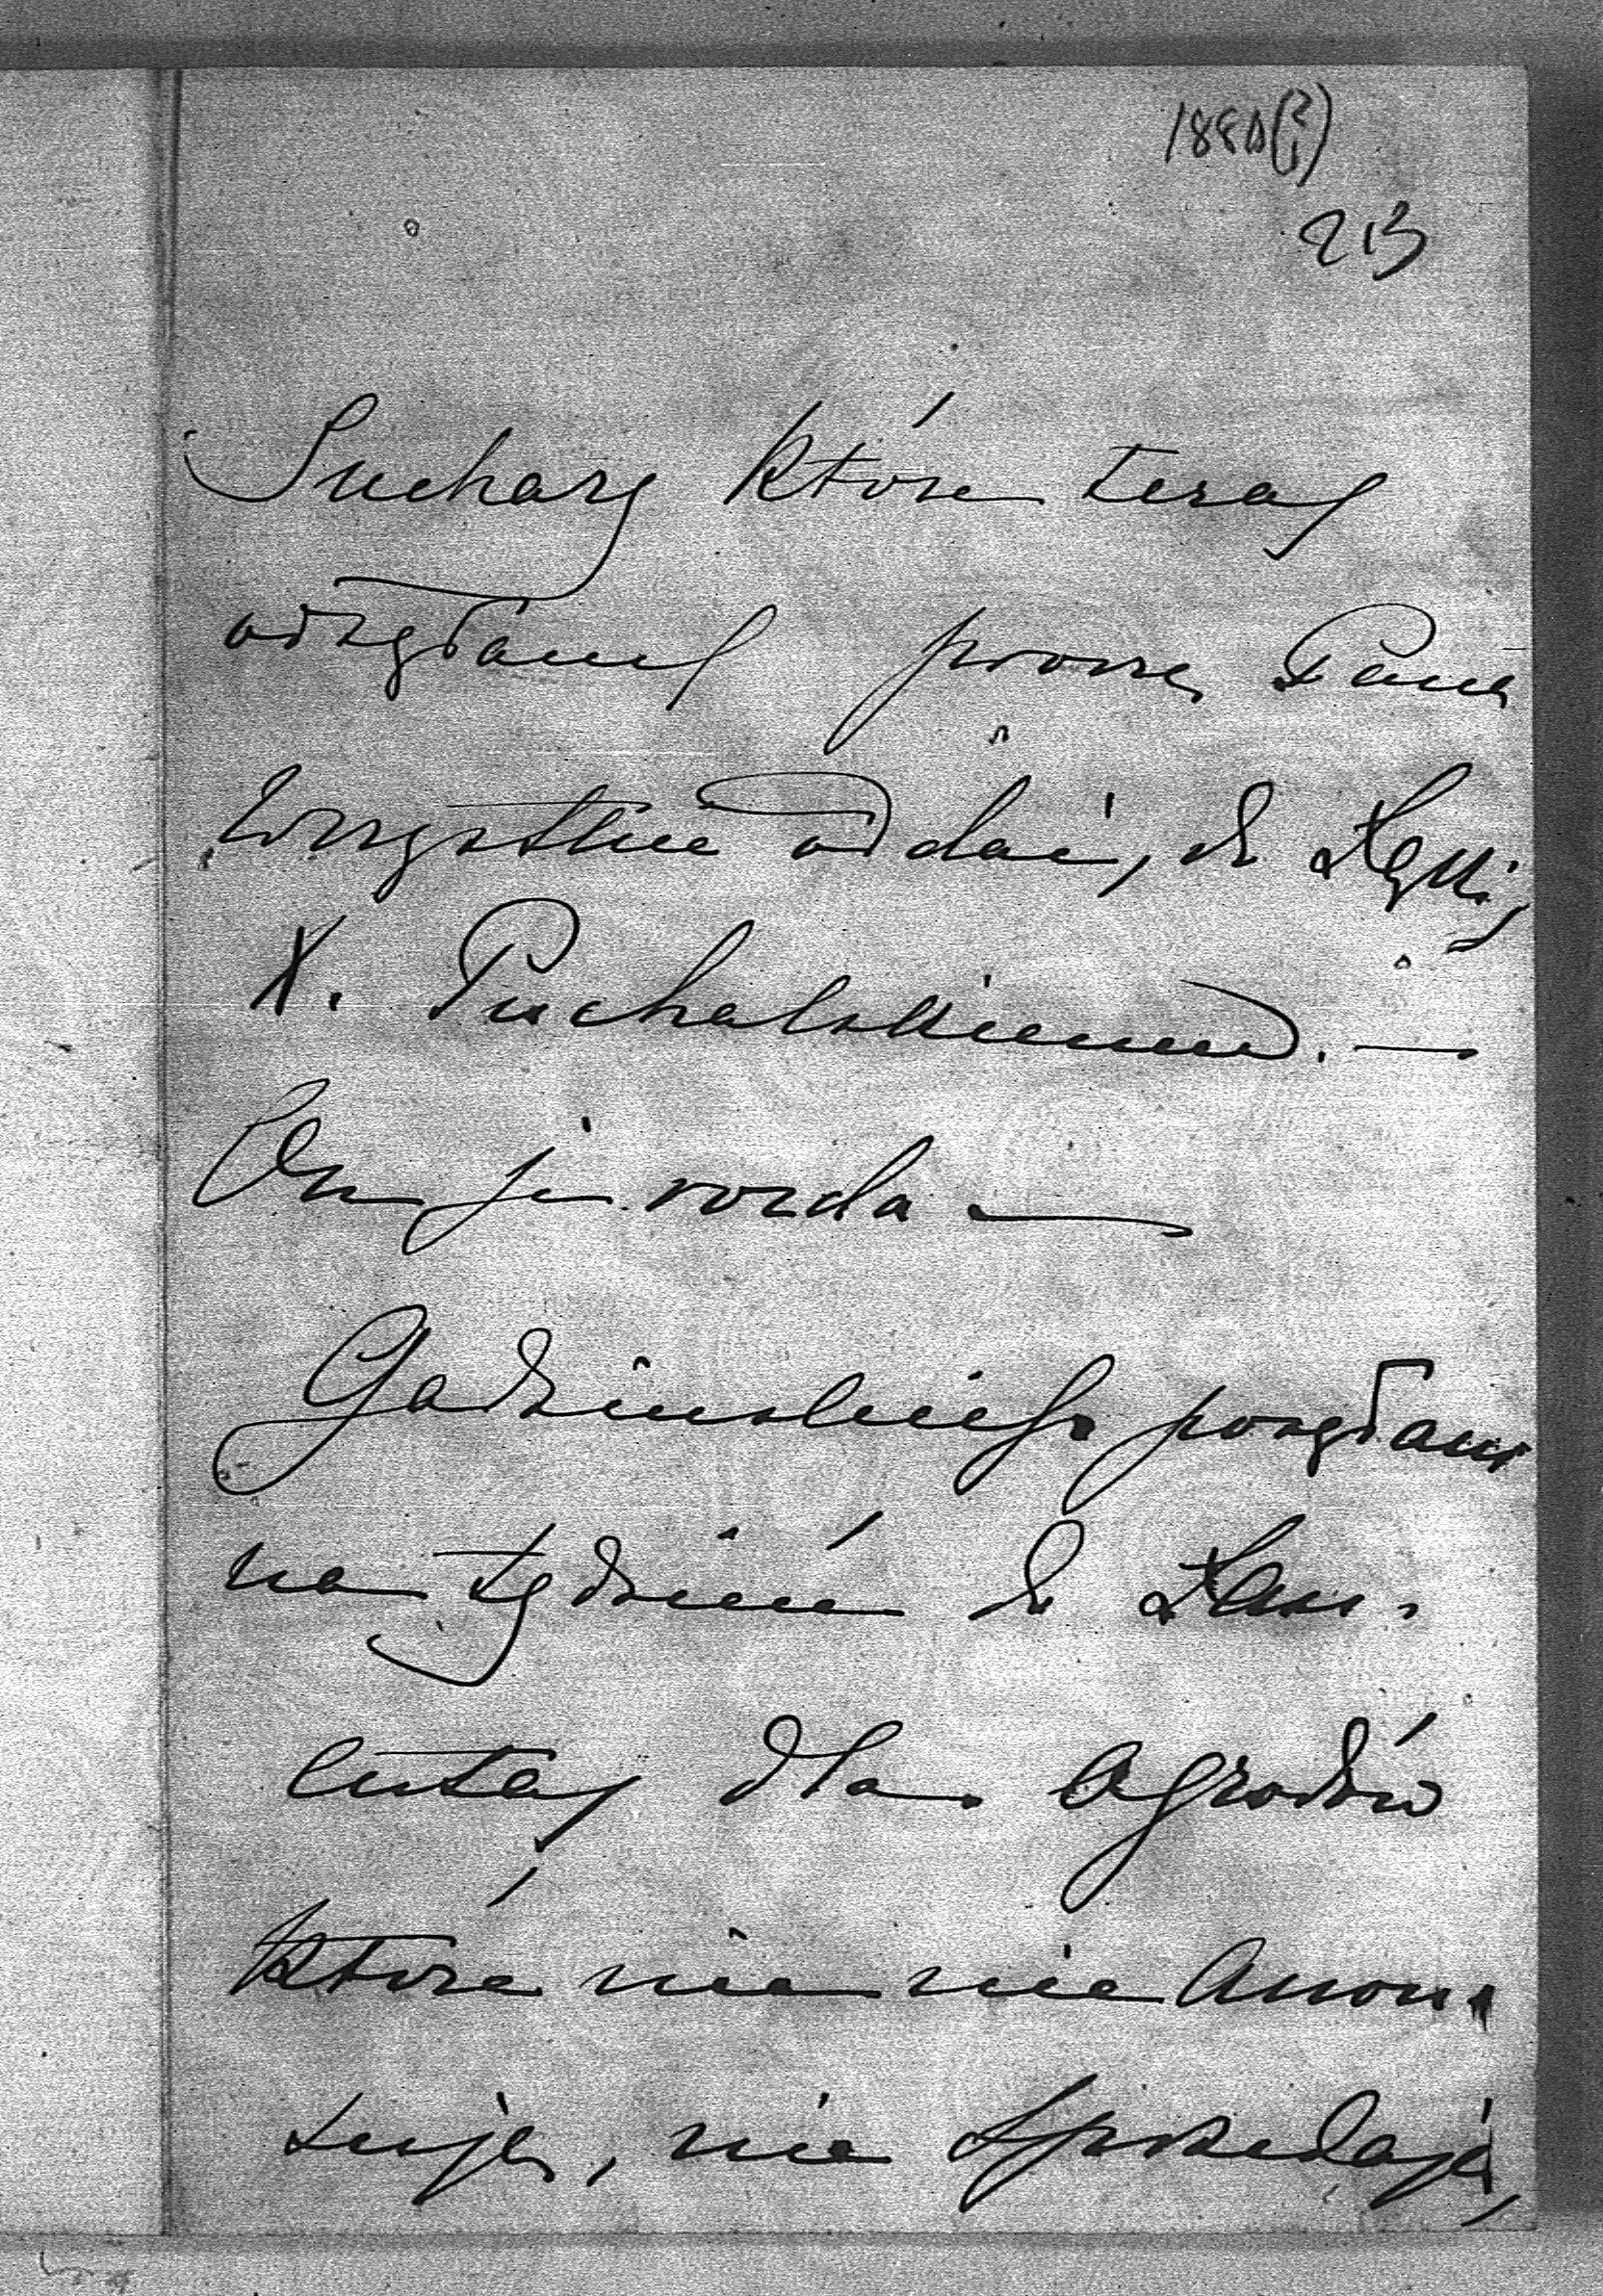 1880(?)
213
Suchary które teraz
odsyłam proszę Pana
wszystkie oddać, do Łąki,
X. Puchalskiemu. —
On je rozda —
Godzinskiego posyłam
na tydzień do Łań-
cuta, dla Ogrodów
które nie nie Amon-
tuje, nie sprzedają,